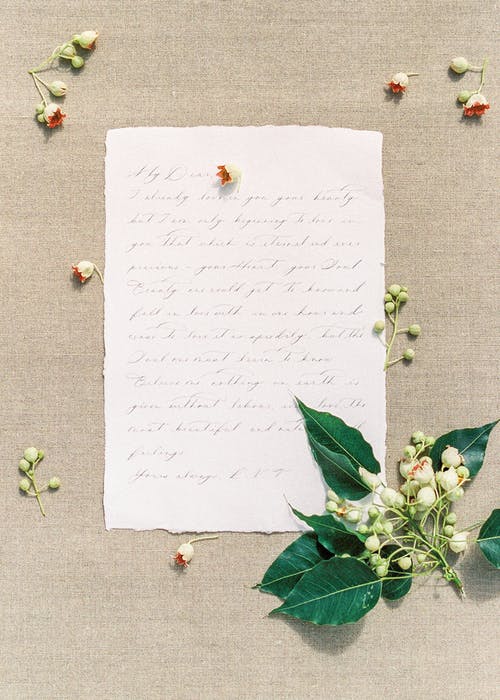 My Dear
I already love in you your beauty
but I am only beginning to love in
you that which is eternal and ever
precious – your Heart, your Soul
Beauty one could get to know and
fall in love with in one hour and
cease to love it as speedily but the
Soul one must learn to know
Believe me nothing on earth is
given without labour, love the
most beautiful and
feelings
Yours always, L. N. T